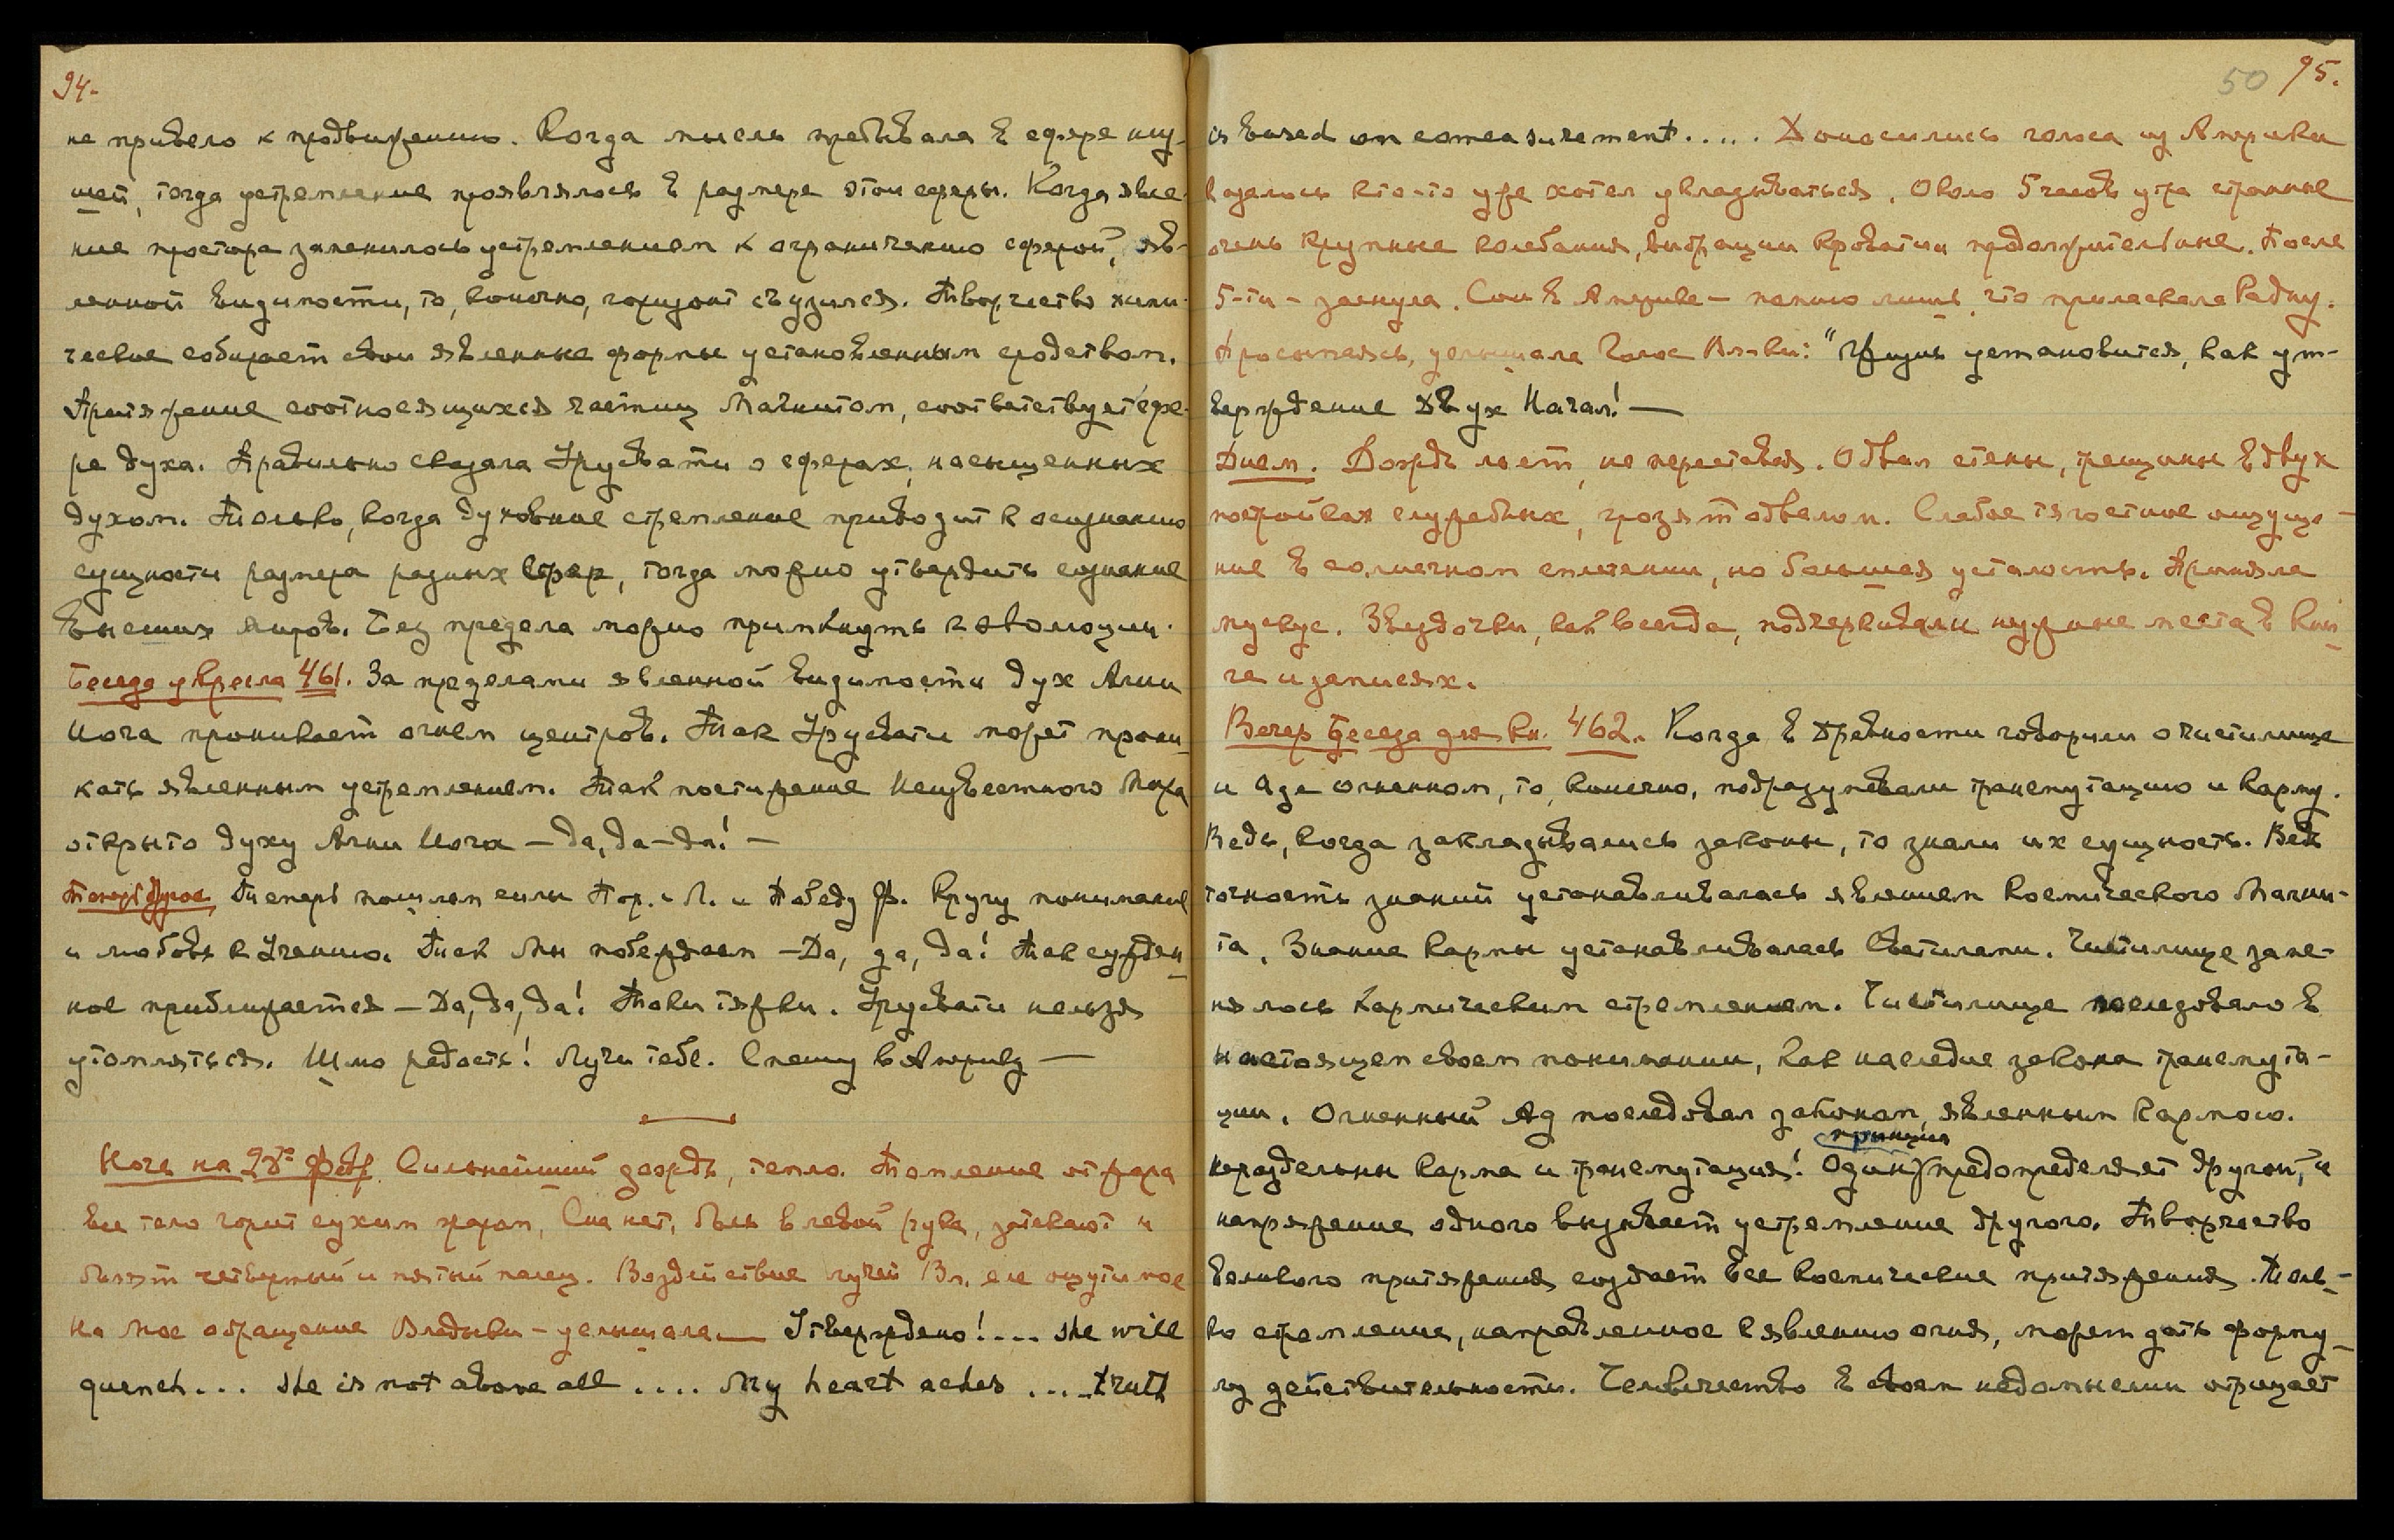 94.
не привело к продвижению. Когда мысль пребывала в сфере низ-
шей, тогда устремление проявлялось в размере этой сферы. Когда явле-
ние простора заменилось устремлением к ограничению сферой, яв-
ленной видимости, то, конечно, горизонт съузился. Творчество хими-
ческое собирает свои явленные формы установленным сродством.
Притяжение соотносящихся частиц Магнитом, соответствует сфе-
ре духа. Правильно сказала Урусвати о сферах, насыщенных
духом. Только, когда духовное стремление приводит к осознанию
сущности размера разных сфер, тогда можно утвердить сознание
Высших миров. Без предела можно примкнуть к эволюции.
Беседа у кресла 461. За пределами явленной видимости дух Агни
Йога проникает огнем центров. Так Урусвати может прони-
кать явленным устремлением. Так постижение Неизвестного Мира
открыто духу Агни Йога – Да, да – да! –
Теперь другое, Теперь пошлем силы Пор. и Л. и Победу Ф. Кругу понимание
и любовь к Учению. Так Мы побеждаем – Да, да, да! Так сужден-
ное приближается – Да, да, да! Токи тяжки. Урусвати нельзя
утомляться. Шлю радость! Лучи тебе. Спешу в Америку —
Ночь на 28ое февр. Сильнейший дождь, тепло. Томление от жара
все тело горит сухим жаром, Сна нет, боль в левой руке, затекают и
болят четвертый и пятый палец. Воздействие лучей Вл. еле ощутимое
На мое обращение Владыки – услышала — Утверждено!.... she will
quench... she is not above all .... My heart aches .... truth
50 95.
is based on comeasurement..... Доносились голоса из Америки
казалось кто-то уже хотел укладываться. Около 5 часов утра странные
очень крупные колебания, вибрации кровати и продолжительные. После
5-ти – заснула. Сон в Америке – помню лишь, что приласкала Радну.
Просыпаясь, услышала Голос Вл-ки: "Жизнь установится, как ут-
верждение Двух Начал! —
Днем. Дождь льет, не переставая. Обвал стены, трещины в двух
постройках служебных, грозят обвалом. Слабое тягостное ощуще-
ние в солнечном сплетении, но большая усталость. Приняла
мускус. Звездочки, как всегда, подчеркивали нужные места в кни-
ге и записях.
Вечер Беседа для кн. 462. Когда в древности говорили о чистилище
и аде огненном, то, конечно, подразумевали трансмутацию и карму.
Ведь, когда закладывались законы, то знали их сущность. Ведь
точность знаний устанавливалась явлением Космического Магни-
та. Знание кармы устанавливалась Светилами. Чистилище заме-
нялось кармическим стремлением. Чистилище последовало в
настоящем своем понимании, как наследие закона трансмута-
ции. Огненный Ад последовал законам, явленным кармою.
принцип
Нераздельны карма и трансмутация! Один предопределяет другой, и
напряжение одного вызывает устремление другого. Творчество
великого притяжения создает все космические притяжения. Толь-
ко стремление, направленное к явлению огня, может дать форму-
лу действительности. Человечество в своем недомыслии отрицает